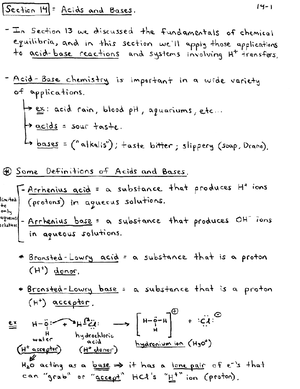 14-1
Section 14 = Acids and Bases.
- In Section 13 we discussed the fundamentals of chemical
equilibria, and in this section we'll apply those applications
to acid-base reactions and systems involving H⁺ transfers.
- Acid-Base chemistry is important in a wide variety
of applications.
→ ex: acid rain, blood pH, aquariums, etc...
→ acids = sour taste.
→ bases = ("alkalis"); taste bitter; slippery (soap, Drano).
* Some Definitions of Acids and Bases.
limited to only aqueous solutions
- Arrhenius acid = a substance that produces H⁺ ions
(protons) in aqueous solutions.
- Arrhenius base = a substance that produces OH⁻ ions
in aqueous solutions.
* Bronsted-Lowry acid = a substance that is a proton
(H⁺) donor.
* Bronsted-Lowry base = a substance that is a proton
(H⁺) acceptor.
ex H-O: + H-Cl: → [H-O-H]⊕ + :Cl:⊖
H H
water hydrochloric acid hydronium ion (H₃O⁺)
(H⁺ acceptor) (H⁺ donor)
H₂O acting as a base → it has a lone pair of e⁻'s that
can "grab" or "accept" HCl's "H⁺" ion (proton).